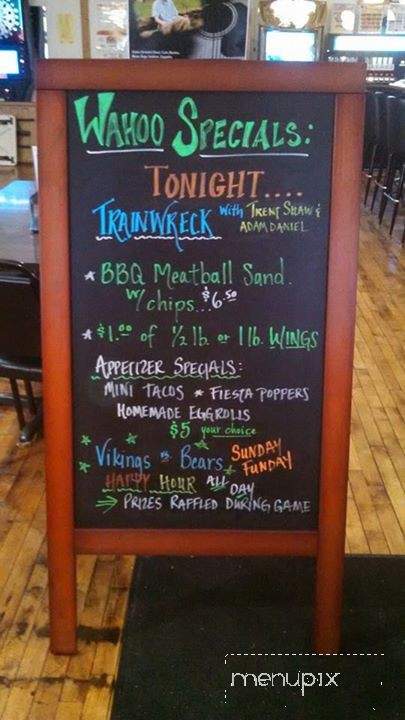 WAHOO SPECIALS:
TONIGHT....
TRAINWRECK with TRENT SHAW &
ADAM DANIEL
* BBQ MEATBALL SAND.
W/ chips... $6.50
* $1.00 of 1/2 lb. or 1 lb. WINGS
APPETIZER SPECIALS:
MINI TACOS * FIESTA POPPERS
HOMEMADE EGGROLLS
$5 your choice
VIKINGS vs. BEARS SUNDAY
FUNDAY
HAPPY HOUR ALL
DAY
→ PRIZES RAFFLED DURING GAME
menupix